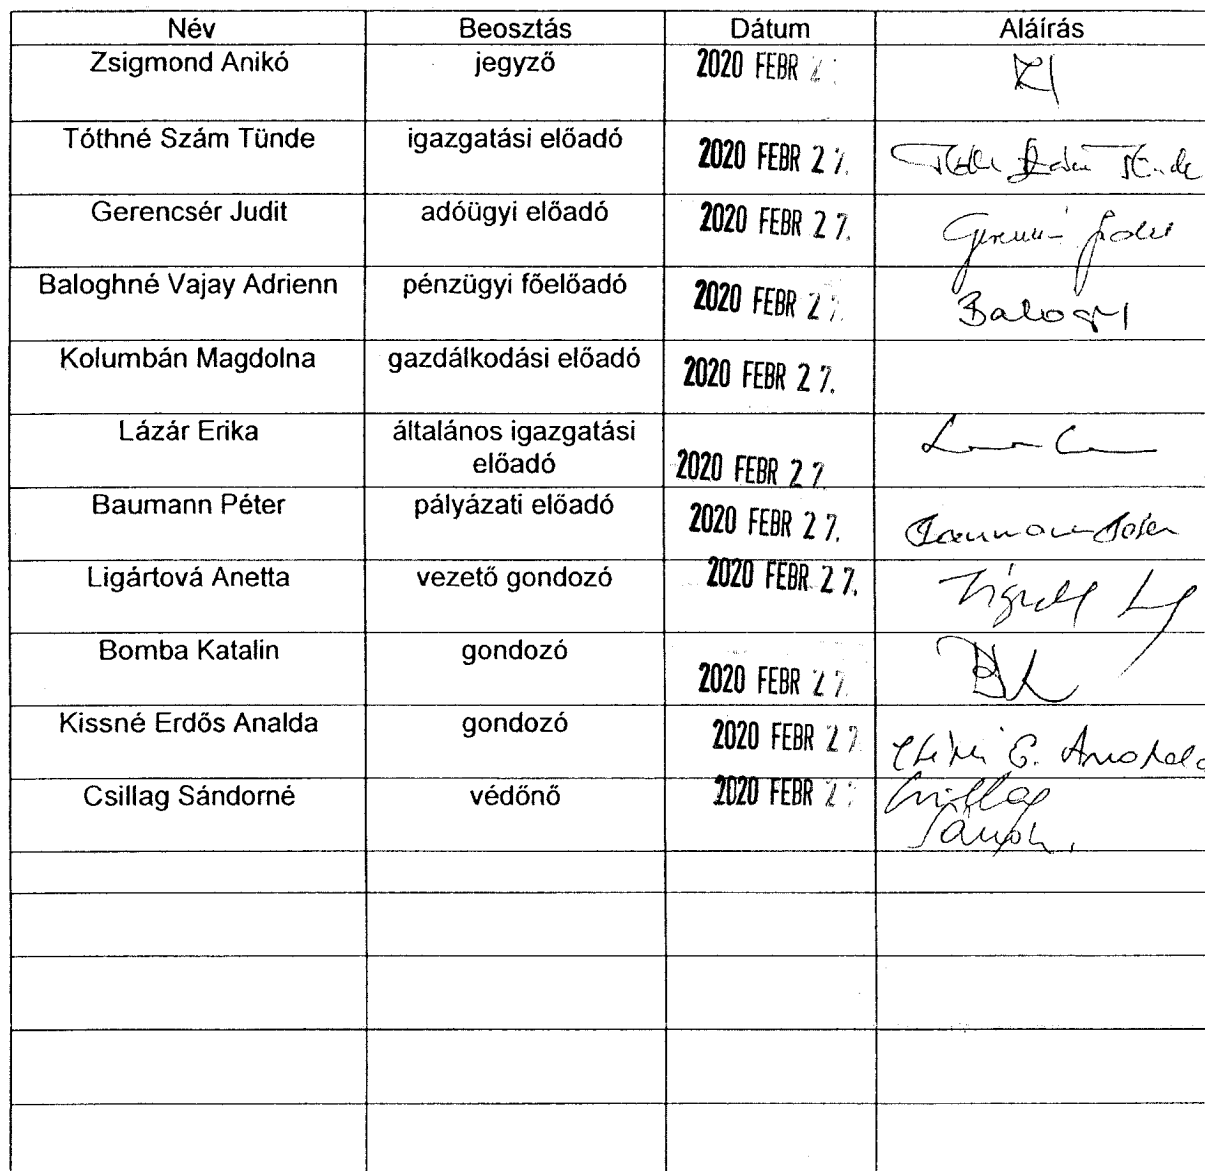 Név Beosztás Dátum Aláírás
Zsigmond Anikó jegyző 2020 FEBR 2
Tóthné Szám Tünde igazgatási előadó 2020 FEBR 27.
Gerencsér Judit adóügyi előadó 2020 FEBR 27.
Baloghné Vajay Adrienn pénzügyi főelőadó 2020 FEBR 27.
Kolumbán Magdolna gazdálkodási előadó 2020 FEBR 27.
Lázár Erika általános igazgatási
előadó 2020 FEBR 27
Baumann Péter pályázati előadó 2020 FEBR 27.
Ligártová Anetta vezető gondozó 2020 FEBR 27.
Bomba Katalin gondozó 2020 FEBR 27.
Kissné Erdős Analda gondozó 2020 FEBR 27
Csillag Sándorné védőnő 2020 FEBR 2 Csillag